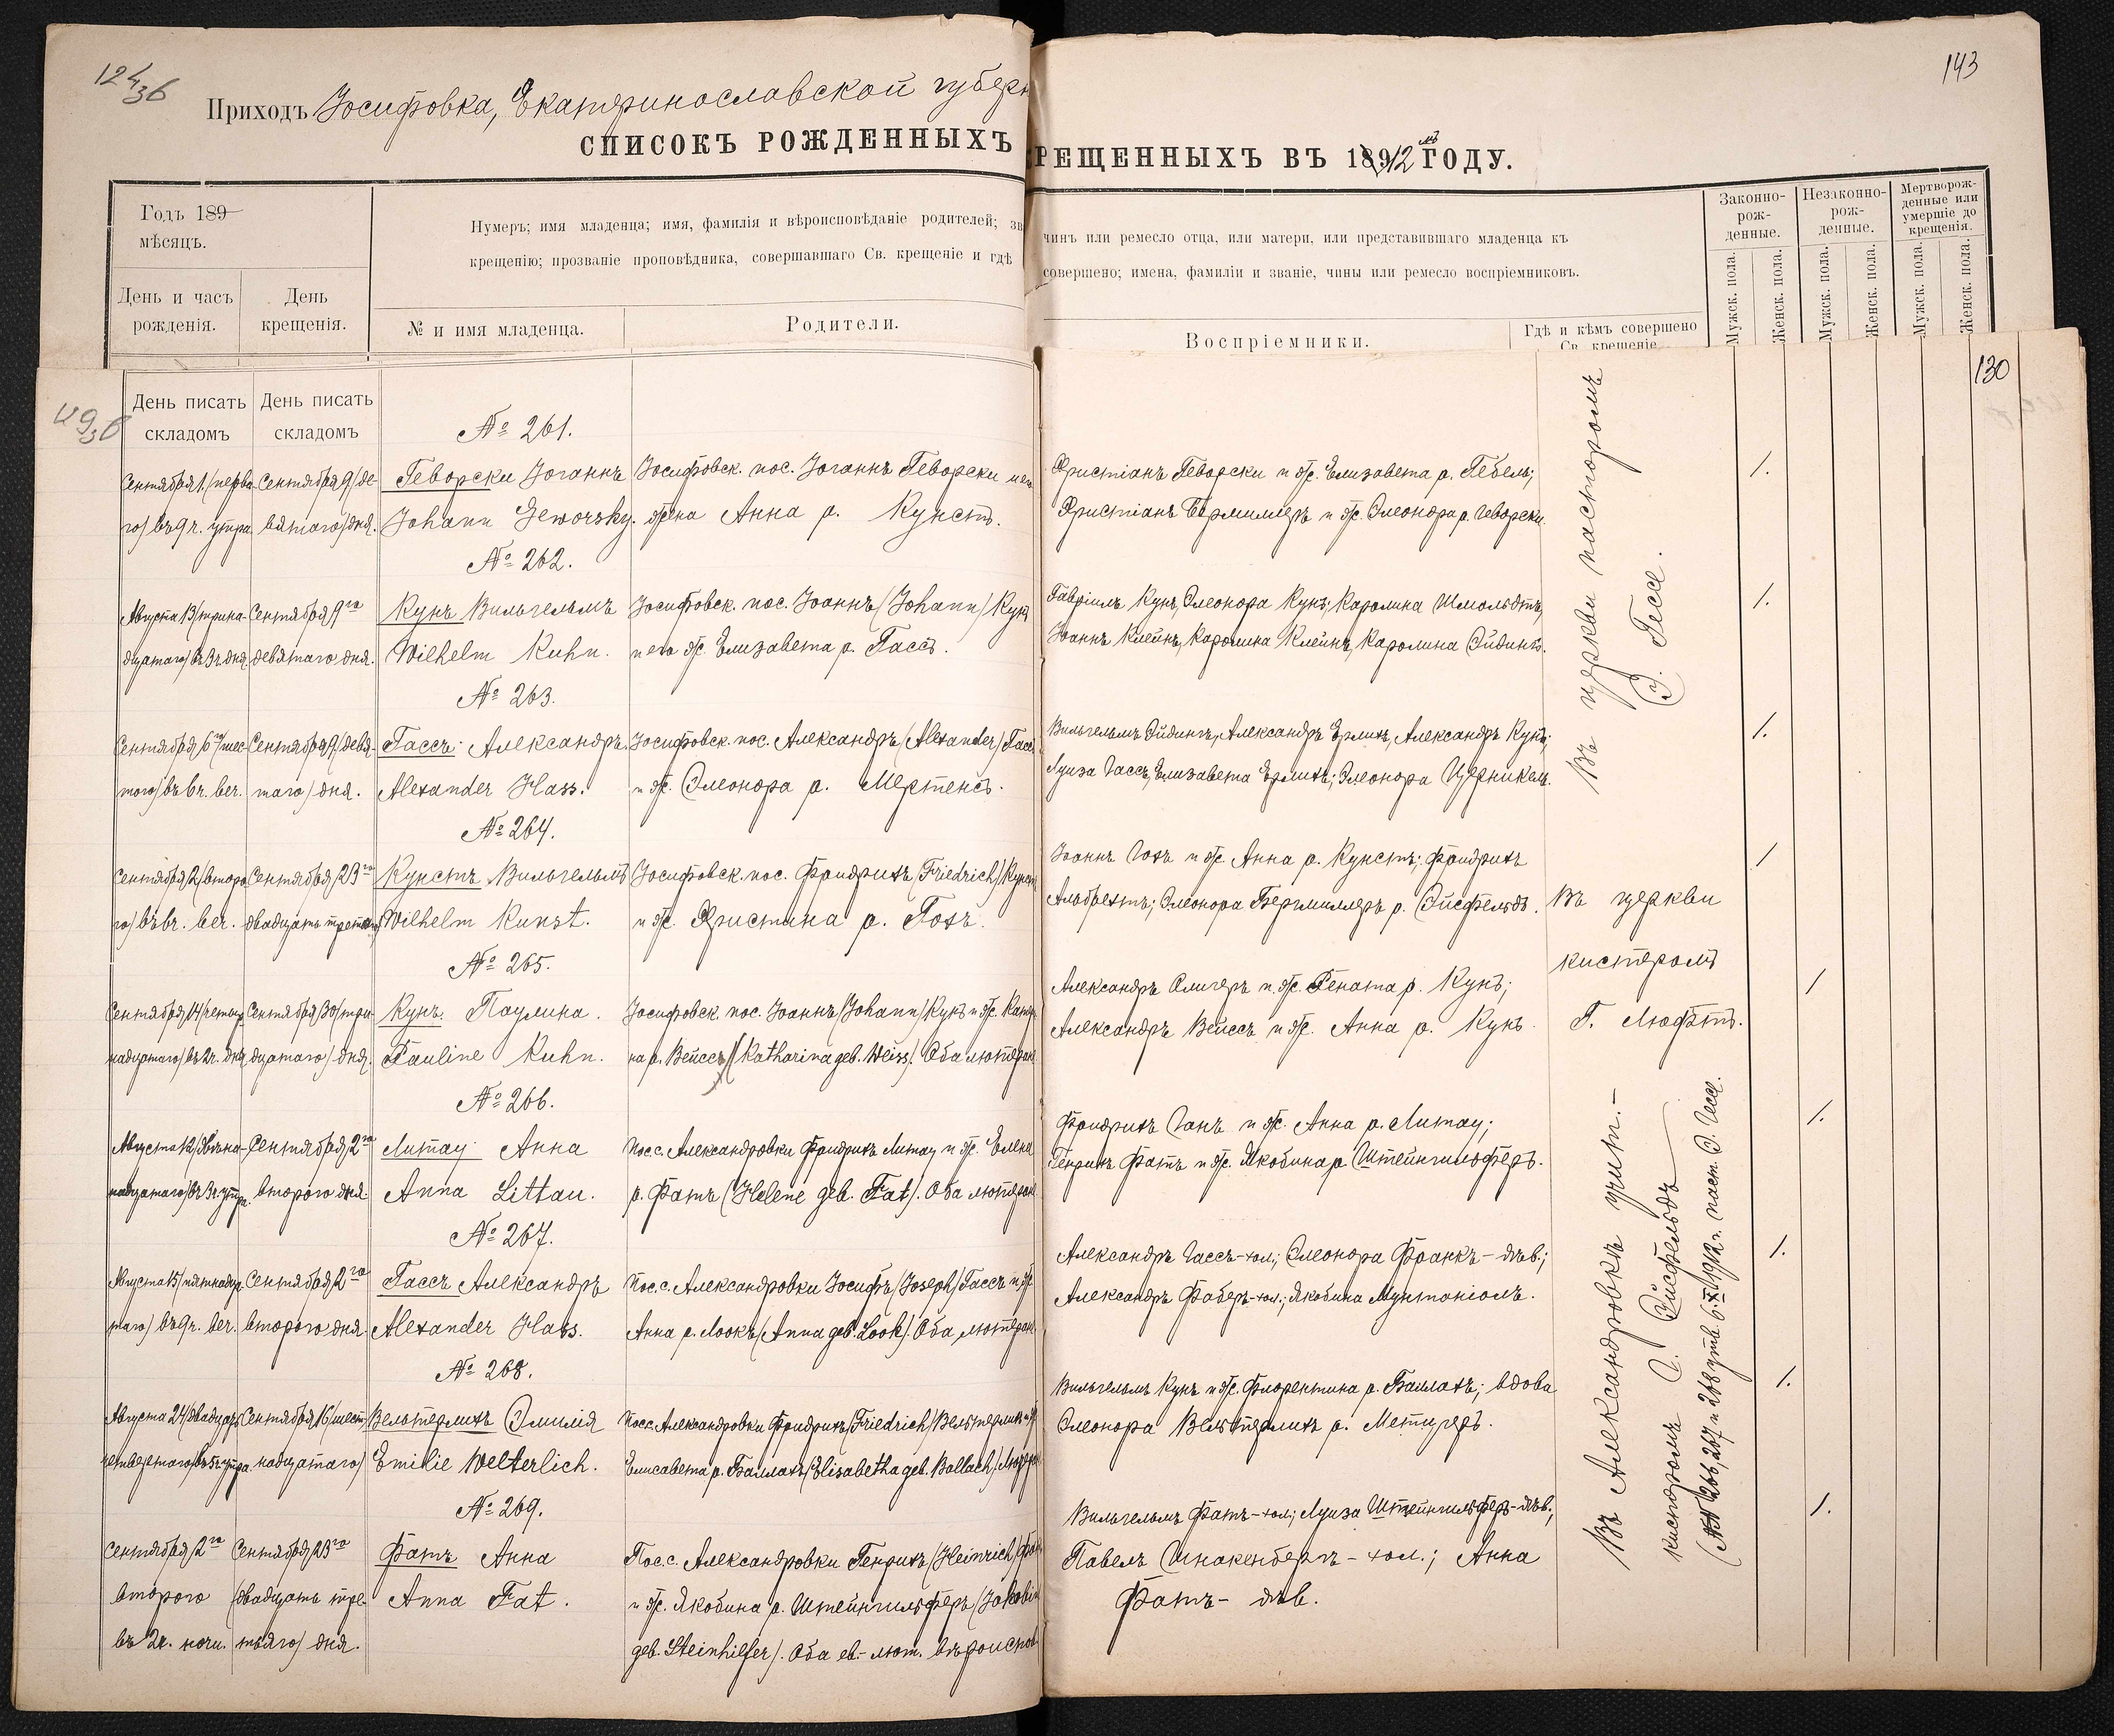 124/3б
143
Приходъ Іосифовка, Екатеринославской губерн
СПИСОКЪ РОЖДЕННЫХЪ
РЕЩЕННЫХЪ ВЪ 1912 ГОДУ.
Годъ 189
мѣсяцъ.
День и часъ рожденія.
День крещенія.
Нумеръ; имя младенца; имя, фамилія и вѣроисповѣданіе родителей; зв
чинъ или ремесло отца, или матери, или представившаго младенца къ
крещенію; прозваніе проповѣдника, совершавшаго Св. крещеніе и гдѣ
совершено; имена, фамиліи и званіе, чины или ремесло воспріемниковъ.
№ и имя младенца.
Родители.
Воспріемники.
Гдѣ и кѣмъ совершено
Св. крещеніе
Законно-рож-денные.
Незаконно-рож-денные.
Мертворож-денные или умершіе до крещенія.
Мужск. пола.
Женск. пола.
Мужск. пола.
Женск. пола.
Мужск. пола.
Женск. пола.
130
День писать складомъ
День писать складомъ
№ 261.
Сентября 1 /перва-
го/ въ 9 ч. утра
Сентября 9 /де-
вятаго/ дня.
Геворски Іоганнъ
Johann Geworsky.
Іосифовск. пос. Іоганнъ Геворски и ею
жена Анна р. Кунстъ.
Христіанъ Геворски и ж. Елизавета р. Гебель;
Христіанъ Бермиллеръ и ж. Элеонора р. Геворски
1.
Въ церкви пасторомъ
Э. Гессе.
№ 262.
Августа 13 /трина-
дцатаго/ въ 3 ч. дня
Сентября 9го
девятаго дня.
Кунъ Вильгельмъ
Wilhelm Kuhn.
Іосифовск. пос. Іоаннъ /Johann/ Кунъ
и его ж. Елизавета р. Гассъ.
Гавріилъ Кунъ, Элеонора Кунъ; Каролина Шмольдтъ,
Іоаннъ Клейнъ, Каролина Клейнъ, Каролина Эйдингъ.
1.
№ 263.
Сентября 6го /шес-
того/ въ 6 ч. веч.
Сентября 9 /девя-
таго/ дня.
Гассъ Александръ.
Alexander Hass.
Іосифовск. пос. Александръ /Alexander/ Гассъ
и ж. Элеонора р. Мертенсъ.
Вильгельмъ Эйдингъ, Александръ Ерлихъ, Александръ Кунъ;
Луиза Гассъ, Елизавета Ерлихъ; Элеонора Церникель.
1.
№ 264.
Сентября 2 /второ-
го/ въ 6 ч. веч.
Сентября 23го
двадцать третьяго
Кунстъ Вильгельмъ
Wilhelm Kunst.
Іосифовск. пос. Фридрихъ /Friedrich/ Кунст
и ж. Христина р. Гохъ.
Іоаннъ Гохъ и ж. Анна р. Кунстъ; Фридрихъ
Альбрехтъ; Элеонора Бергмиллеръ р. Эйсфельдъ.
Въ церкви
кистеромъ
Г. Люфтъ.
1
№ 265.
Сентября 14 /четыр-
надцатаго/ въ 2 ч. дня
Сентября 30 /три-
дцатаго/ дня.
Кунъ Паулина.
Pauline Kuhn.
Іосифовск. пос. Іоаннъ /Johann/ Кунъ и ж. Катр
на р. Вейссъ /Katharina geb. Weiss/. Оба лютеран
Александръ Олигеръ и ж. Рената р. Кунъ;
Александръ Вейссъ и ж. Анна р. Кунъ.
1
№ 266.
Августа 12 /двѣна-
надцатаго/ въ 3 ч. утра
Сентября 2го
второго дня
Литау Анна
Anna Littau.
Пос. с. Александровки Фридрихъ Литау и ж. Елена
р. Фатъ (Helene geb. Fat). Оба лютеран
Фридрихъ Ганъ и ж. Анна р. Литау;
Генрихъ Фатъ и ж. Якобина р. Штейнгильферъ.
1.
Въ Александровкѣ учит.-
кистеромъ Г. Эйсфельдъ
(№№ 266, 267 и 268 утв. 6.XI 1912 г. паст. Э. Гессе.
№ 267.
Августа 15 /пятнадца-
таго/ въ 9 ч. веч.
Сентября 2го
второго дня.
Гассъ Александръ
Alexander Hass.
Пос. с. Александровки Іосифъ /Joseph/ Гассъ и ж
Анна р. Лоокъ /Anna geb. Look/. Оба лютеран
Александръ Гассъ-хол.; Элеонора Франкъ-дѣв;
Александръ Фаберъ-хол.; Якобина Мунтаніолъ.
1.
№ 268.
Августа 24 /двадцать
четвертаго/ въ 5 ч. утра
Сентября 16 /шест-
надцатаго/
Вельтерлихъ Эмилія
Emilie Welterlich.
Пос. с. Александровки Фридрихъ /Friedrich/ Вельтерлихъ и ж
Елисавета р. Баллахъ /Elisabetha geb. Ballach/ Лютер
Вильгельмъ Кунъ и ж. Флорентина р. Баллахъ; вдова
Элеонора Вельтерлихъ р. Метцгеръ.
1.
№ 269.
Сентября 2го
второго
въ 2 ч. ночи.
Сентября 23го
(двадцать тре-
тьяго/ дня.
Фатъ Анна
Anna Fat.
Пос. с. Александровки Генрихъ /Heinrich/ Фат
и ж. Якобина р. Штейнгильферъ /Jakobin
geb. Steinhilfer). Оба ев.-лют. вѣроиспов
Вильгельмъ Фатъ-хол.; Луиза Штейнгильферъ-дѣв.;
Павелъ Шнакенбергъ-хол.; Анна
Фатъ-дѣв.
1.